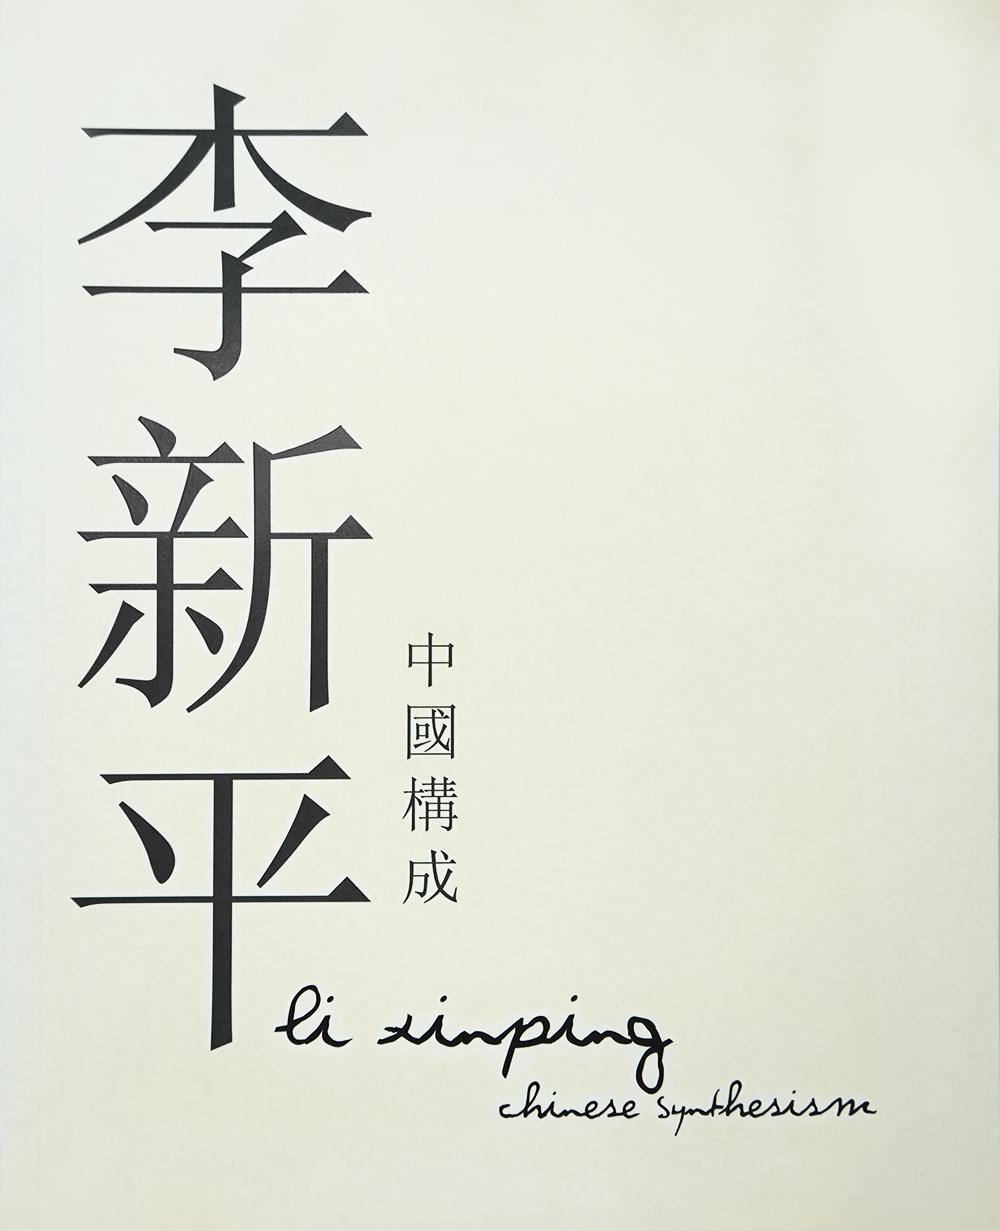 李新平
中國構成
li xinping
chinese synthesism